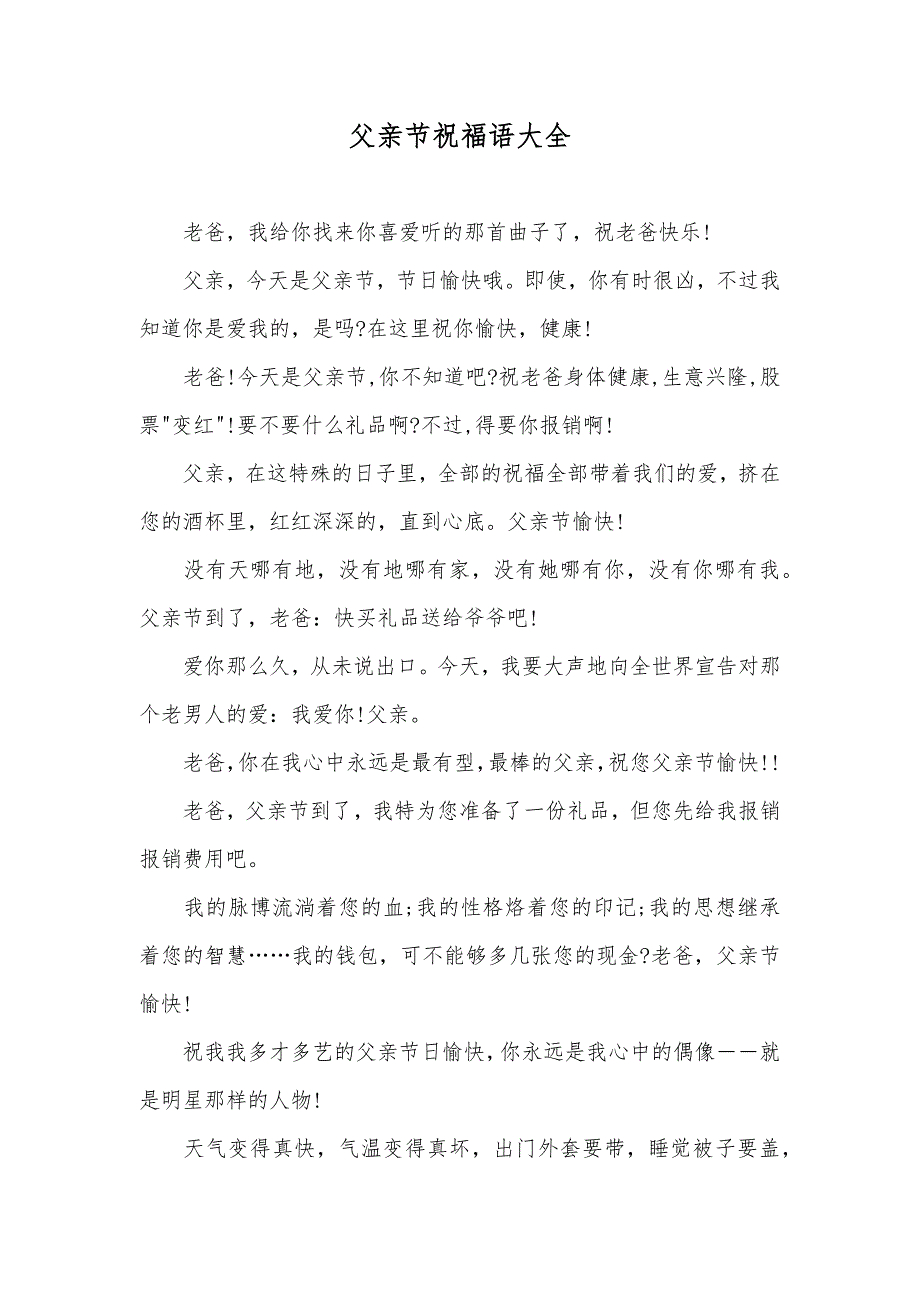 父亲节祝福语大全
老爸，我给你找来你喜爱听的那首曲子了，祝老爸快乐!
父亲，今天是父亲节，节日愉快哦。即使，你有时很凶，不过我
知道你是爱我的，是吗?在这里祝你愉快，健康!
老爸!今天是父亲节,你不知道吧?祝老爸身体健康,生意兴隆,股
票"变红"!要不要什么礼品啊?不过,得要你报销啊!
父亲，在这特殊的日子里，全部的祝福全部带着我们的爱，挤在
您的酒杯里，红红深深的，直到心底。父亲节愉快!
没有天哪有地，没有地哪有家，没有她哪有你，没有你哪有我。
父亲节到了，老爸：快买礼品送给爷爷吧!
爱你那么久，从未说出口。今天，我要大声地向全世界宣告对那
个老男人的爱：我爱你!父亲。
老爸,你在我心中永远是最有型,最棒的父亲,祝您父亲节愉快!!
老爸，父亲节到了，我特为您准备了一份礼品，但您先给我报销
报销费用吧。
我的脉博流淌着您的血;我的性格烙着您的印记;我的思想继承
着您的智慧……我的钱包，可不能够多几张您的现金?老爸，父亲节
愉快!
祝我我多才多艺的父亲节日愉快,你永远是我心中的偶像－－就
是明星那样的人物!
天气变得真快，气温变得真坏，出门外套要带，睡觉被子要盖，